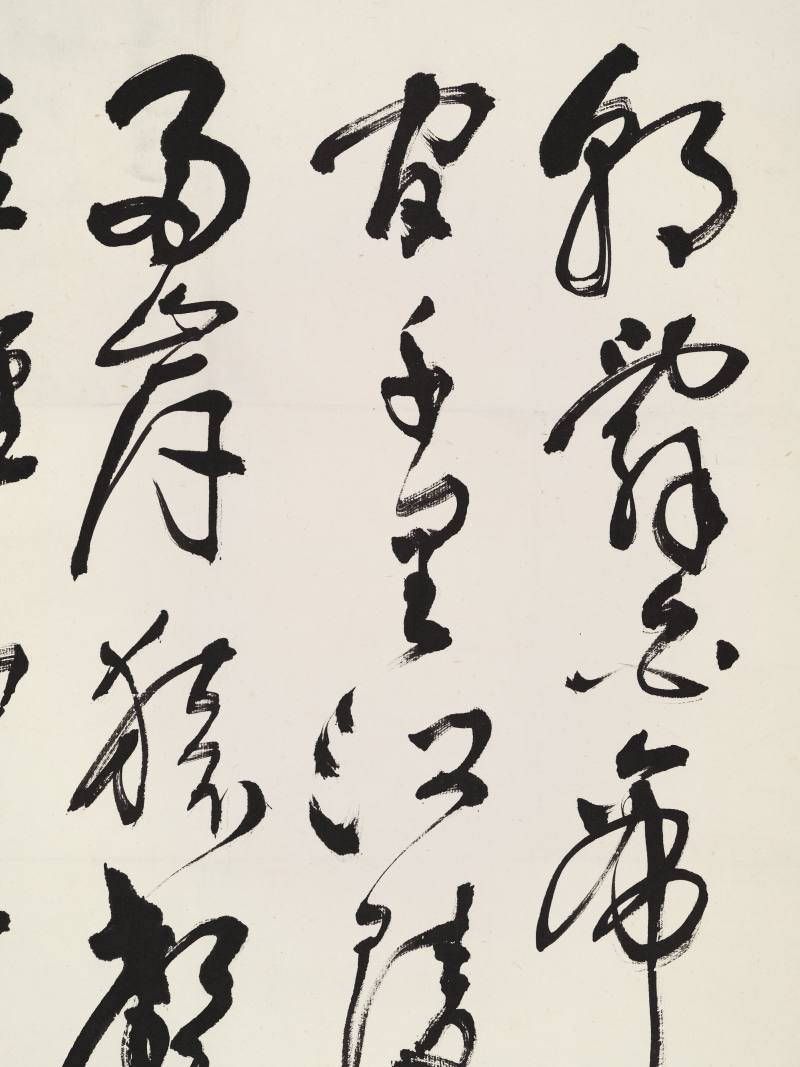 朝辭白帝
間千里江陵
兩岸猿聲